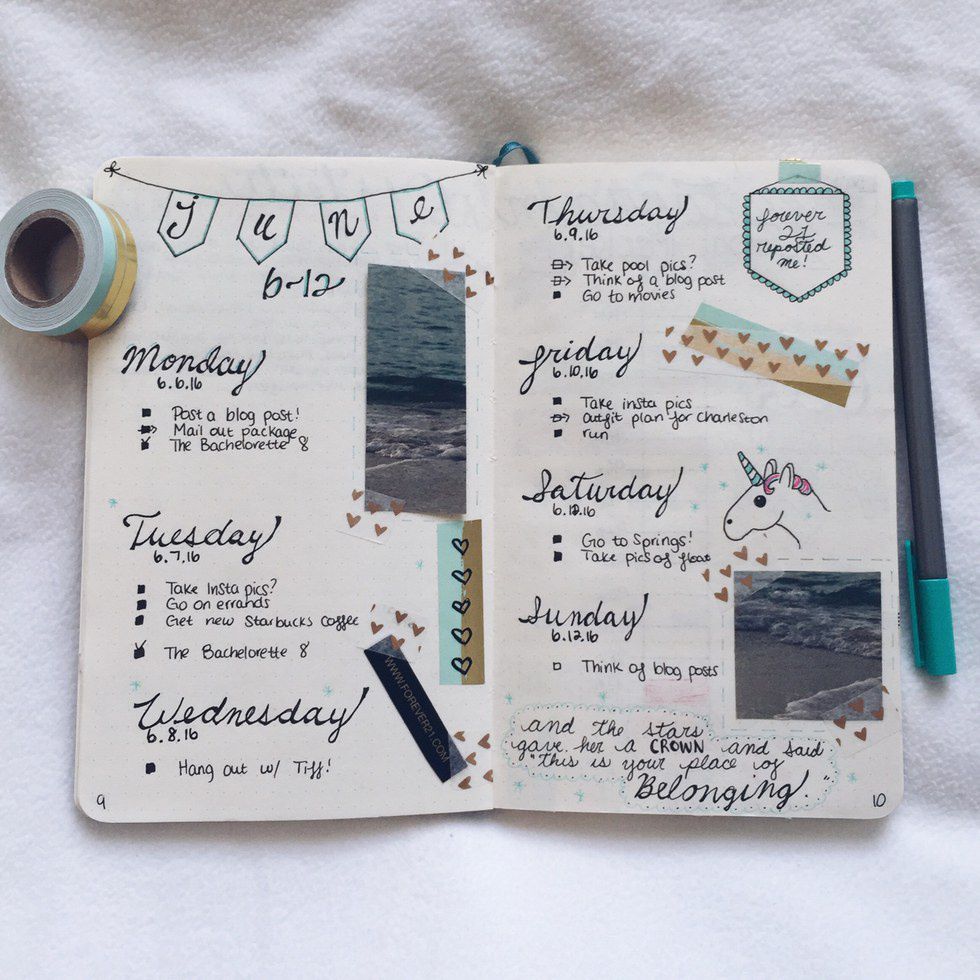 June
6-12
Monday
6.6.16
Post a blog post!
Mail out package
The Bachelorette 8
Tuesday
6.7.16
Take Insta pics?
Go on errands
Get new Starbucks coffee
The Bachelorette 8
Wednesday
6.8.16
Hang out w/ Tiff!
WWW.FOREVER21.COM
9
Thursday
6.9.16
Take pool pics?
Think of a blog post
Go to movies
forever
21
reposted
me!
Friday
6.10.16
Take insta pics
Outfit plan for Charleston
run
Saturday
Go to Springs!
Take pics of float
Sunday
6.12.16
Think of blog posts
and the stars
gave her a CROWN and said
"this is your place of
Belonging."
10